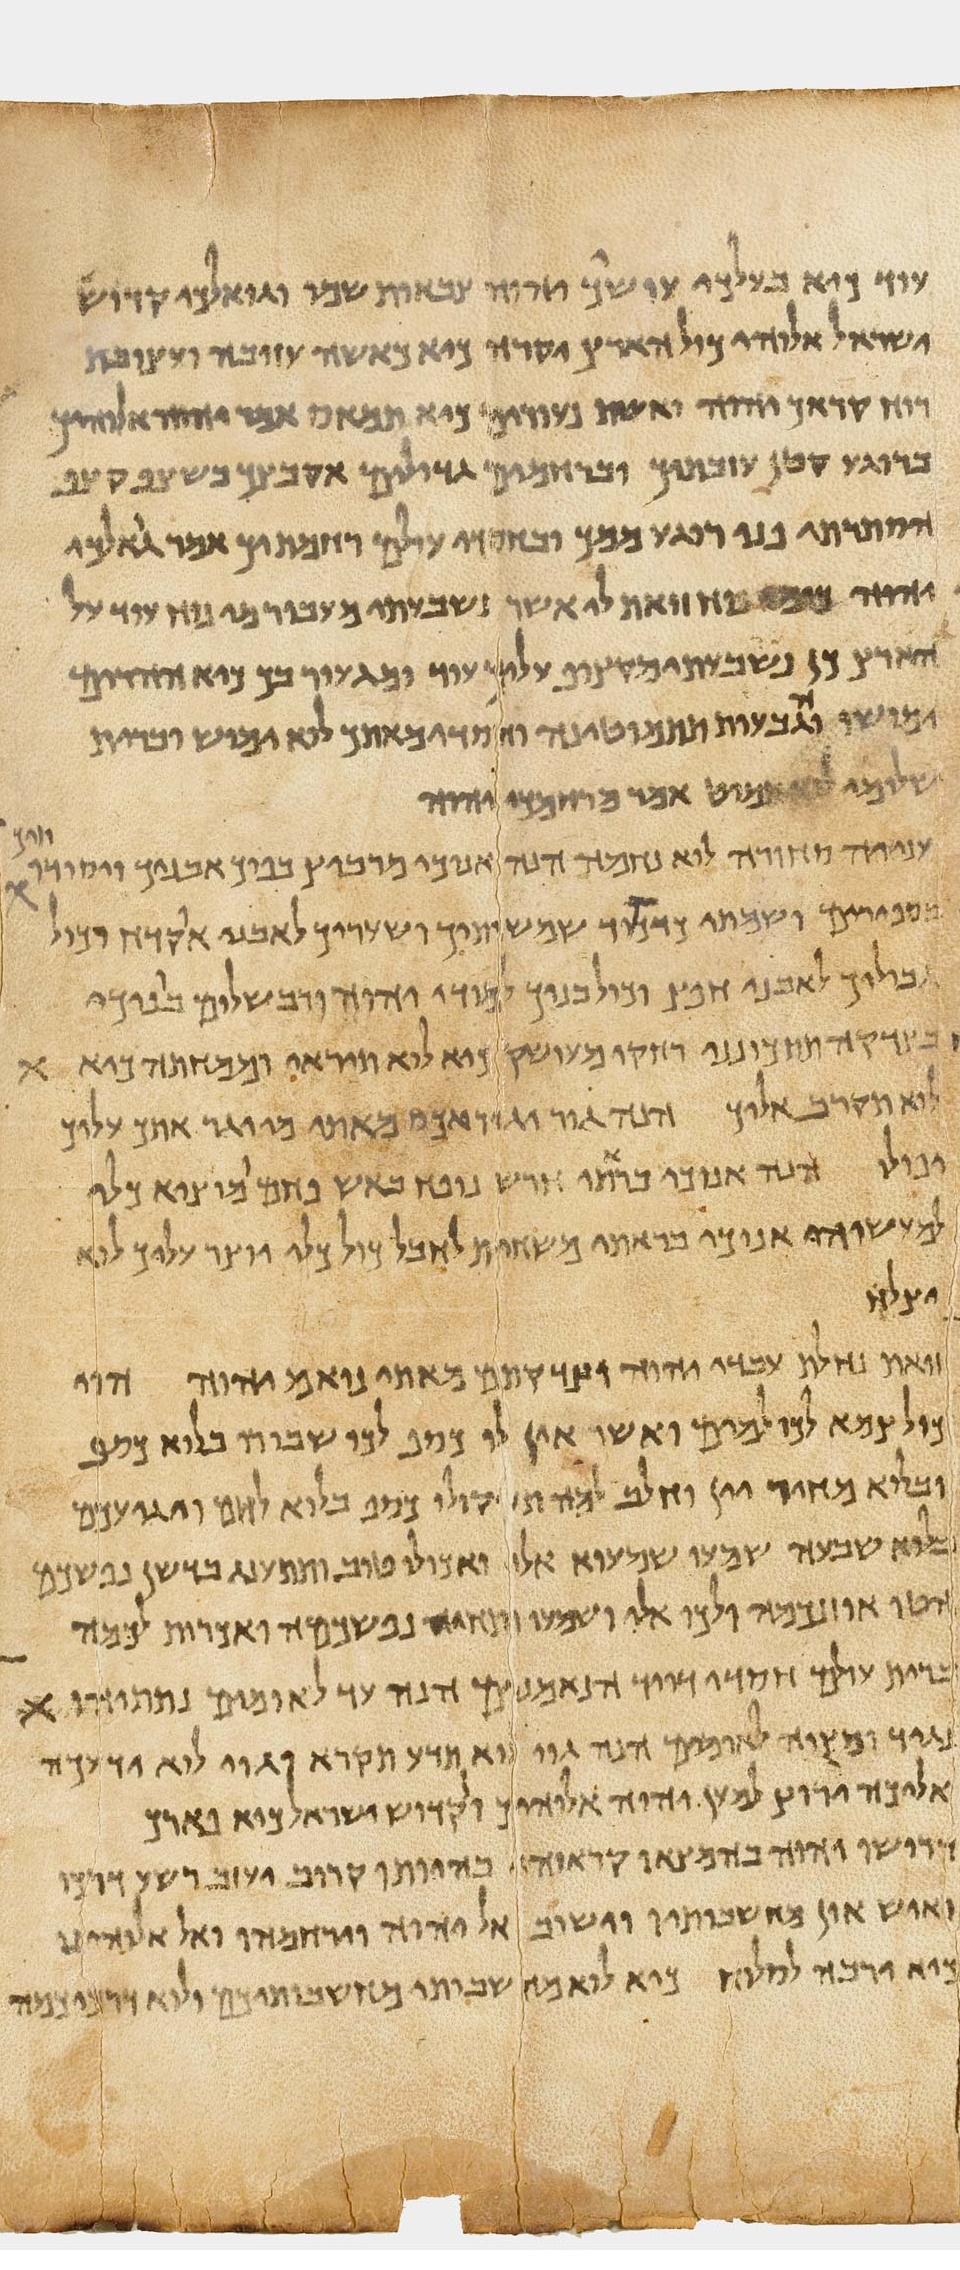 עוד כיא בעלכי עושיך יהוה צבאות שמו וגואלכי קדוש
ישראל אלוהי כול הארץ יקרה כיא כאשה עזובה ועצובת
רוח קראך יהוה ואשת נעורים כיא תמאס אמר יהוה אלוהיך
ברוגע קטן עזבתיך וברחמים גדולים אקבצך בשצף קצף
הסתרתי פני רוגע ממך ובחסדי עולם רחמתיך אמר גאלכי
יהוה כימי נוח זואת לי אשר נשבעתי מעבור מי נוח עוד על
הארץ כן נשבעתי מקצוף עליך עוד ומגעור בך כיא ההרים
ימושו והגבעות תתמוטינה וחסדי מאתך לוא ימוש וברית
שלומי לוא תמוט אמר מרחמכי יהוה
עניה סחורה לוא נחמה הנה אנוכי מרביץ בפוך אבניך ויסודותיך
בספירים ושמתי כדכוד שמשותיך ושעריך לאבני אקדח וכול
גבוליך לאבני חפץ וכול בניך למודי יהוה ורב שלום בניכי
בצדקה תתכונני רחקי מעושק כיא לוא תיראי וממחתה כיא
לוא תקרב אליך הנה גור יגר אכס מאתי מי יגר אתך עליך
יפולו הנה אנוכי בראתי חרש נופח באש פחם ומוציא כלי
למעשיהו אנוכי בראתי משחית לחבל כול כלי יוצר עליך לוא
יצלח
זואת נחלת עבדי יהוה וצדקתם מאתי נואם יהוה הוי
כול צמא לכו למים ואשר אין לו כסף לכו שבורו בלוא כסף
ובלוא מחיר יין וחלב למה תשקולו כסף בלוא לחם ויגיעכם
בלוא שבעה שמעו שמוע אלי ואכולו טוב ותתענג בדשן נפשכם
הטו אוזנכמה ולכו אלי ושמעו ותחיה נפשכמה ואכרות לכמה
ברית עולם חסדי דויד הנאמנים הנה עד לאומים נתתיהו
נגיד ומצוה לאומים הנה גוי לוא תדע תקרא וגוי לוא ידעכה
אליכה ירוץ למען יהוה אלוהיך וקדוש ישראל כיא פארך
דרושו יהוה בהמצאו קראוהו בהיותו קרוב יעזוב רשע דרכו
ואיש און מחשבותיו וישוב אל יהוה וירחמהו ואל אלוהינו
כיא ירבה לסלוח כיא לוא מחשבותי מחשבותיכם ולוא דרכיכמה